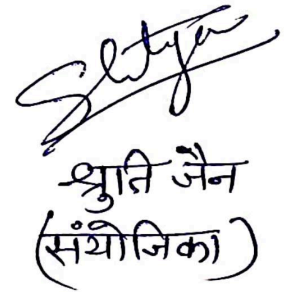 श्रुति जैन
(संयोजिका)